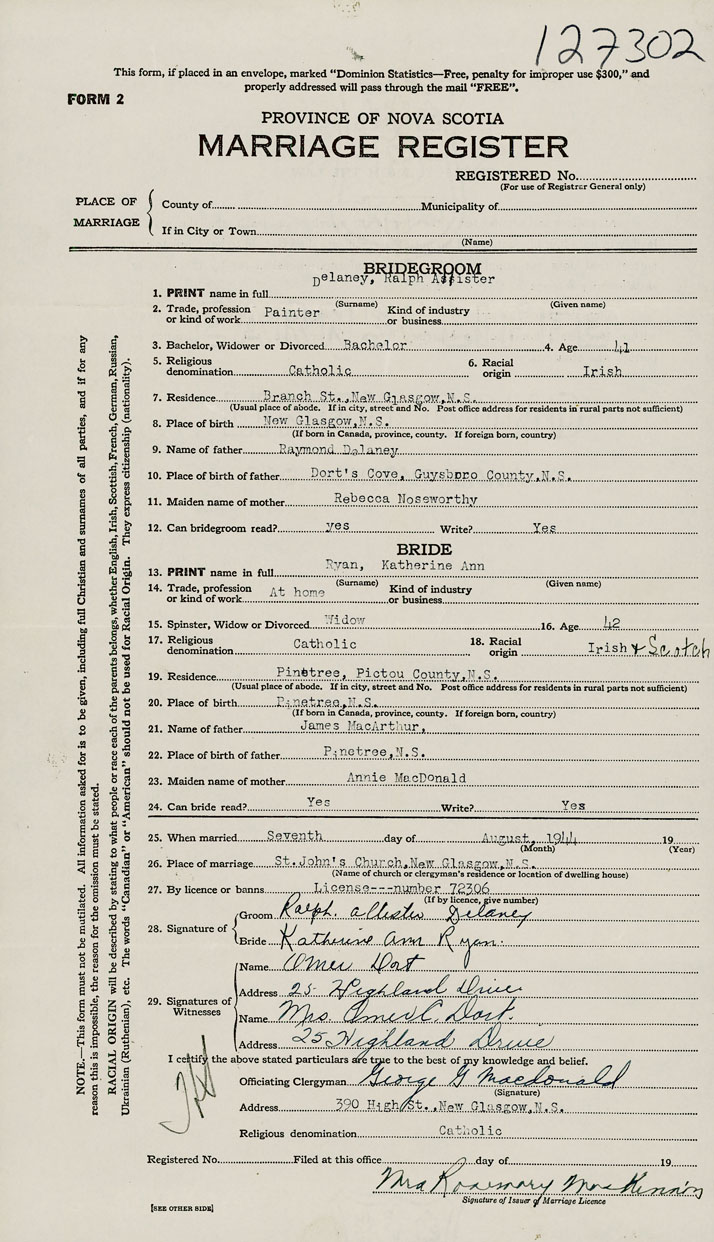 127302
This form, if placed in an envelope, marked "Dominion Statistics—Free, penalty for improper use $300," and
properly addressed will pass through the mail "FREE".
FORM 2
PROVINCE OF NOVA SCOTIA
MARRIAGE REGISTER
REGISTERED No.
(For use of Registrar General only)
PLACE OF MARRIAGE
County of Municipality of
If in City or Town
(Name)
BRIDEGROOM
Delaney, Ralph Allister
1. PRINT name in full
(Surname) (Given name)
2. Trade, profession or kind of work Painter Kind of industry or business
3. Bachelor, Widower or Divorced Bachelor 4. Age 41
5. Religious denomination Catholic 6. Racial origin Irish
7. Residence Branch St., New Glasgow, N.S.
(Usual place of abode. If in city, street and No. Post office address for residents in rural parts not sufficient)
8. Place of birth New Glasgow, N.S.
(If born in Canada, province, county. If foreign born, country)
9. Name of father Raymond Delaney
10. Place of birth of father Dort's Cove, Guysboro County, N.S.
11. Maiden name of mother Rebecca Noseworthy
12. Can bridegroom read? yes Write? Yes
BRIDE
Ryan, Katherine Ann
13. PRINT name in full
(Surname) (Given name)
14. Trade, profession or kind of work At home Kind of industry or business
15. Spinster, Widow or Divorced Widow 16. Age 42
17. Religious denomination Catholic 18. Racial origin Irish & Scotch
19. Residence Pinetree, Pictou County, N.S.
(Usual place of abode. If in city, street and No. Post office address for residents in rural parts not sufficient)
20. Place of birth Pinetree, N.S.
(If born in Canada, province, county. If foreign born, country)
21. Name of father James MacArthur,
22. Place of birth of father Pinetree, N.S.
23. Maiden name of mother Annie MacDonald
24. Can bride read? Yes Write? Yes
25. When married Seventh day of August, 1944 19
(Month) (Year)
26. Place of marriage St. John's Church, New Glasgow, N.S.
(Name of church or clergyman's residence or location of dwelling house)
27. By licence or banns License---number 72306
(If by licence, give number)
28. Signature of
Groom Ralph Allister Delaney
Bride Katherine Ann Ryan.
29. Signatures of Witnesses
Name Omer Dort
Address 25 Highland Drive
Name Mrs. Omer C. Dort.
Address 25 Highland Drive
I certify the above stated particulars are true to the best of my knowledge and belief.
Officiating Clergyman George G Macdonald
(Signature)
Address 390 High St., New Glasgow, N.S.
Religious denomination Catholic
Registered No. Filed at this office day of 19
Mrs Rosemary MacKinnon
Signature of Issuer of Marriage Licence
[SEE OTHER SIDE]
NOTE.—This form must not be mutilated. All information asked for is to be given, including full Christian and surnames of all parties, and if for any
reason this is impossible, the reason for the omission must be stated.
RACIAL ORIGIN will be described by stating to what people or race each of the parents belongs, whether English, Irish, Scottish, French, German, Russian,
Ukrainian (Ruthenian), etc. The words "Canadian" or "American" should not be used for Racial Origin. They express citizenship (nationality).